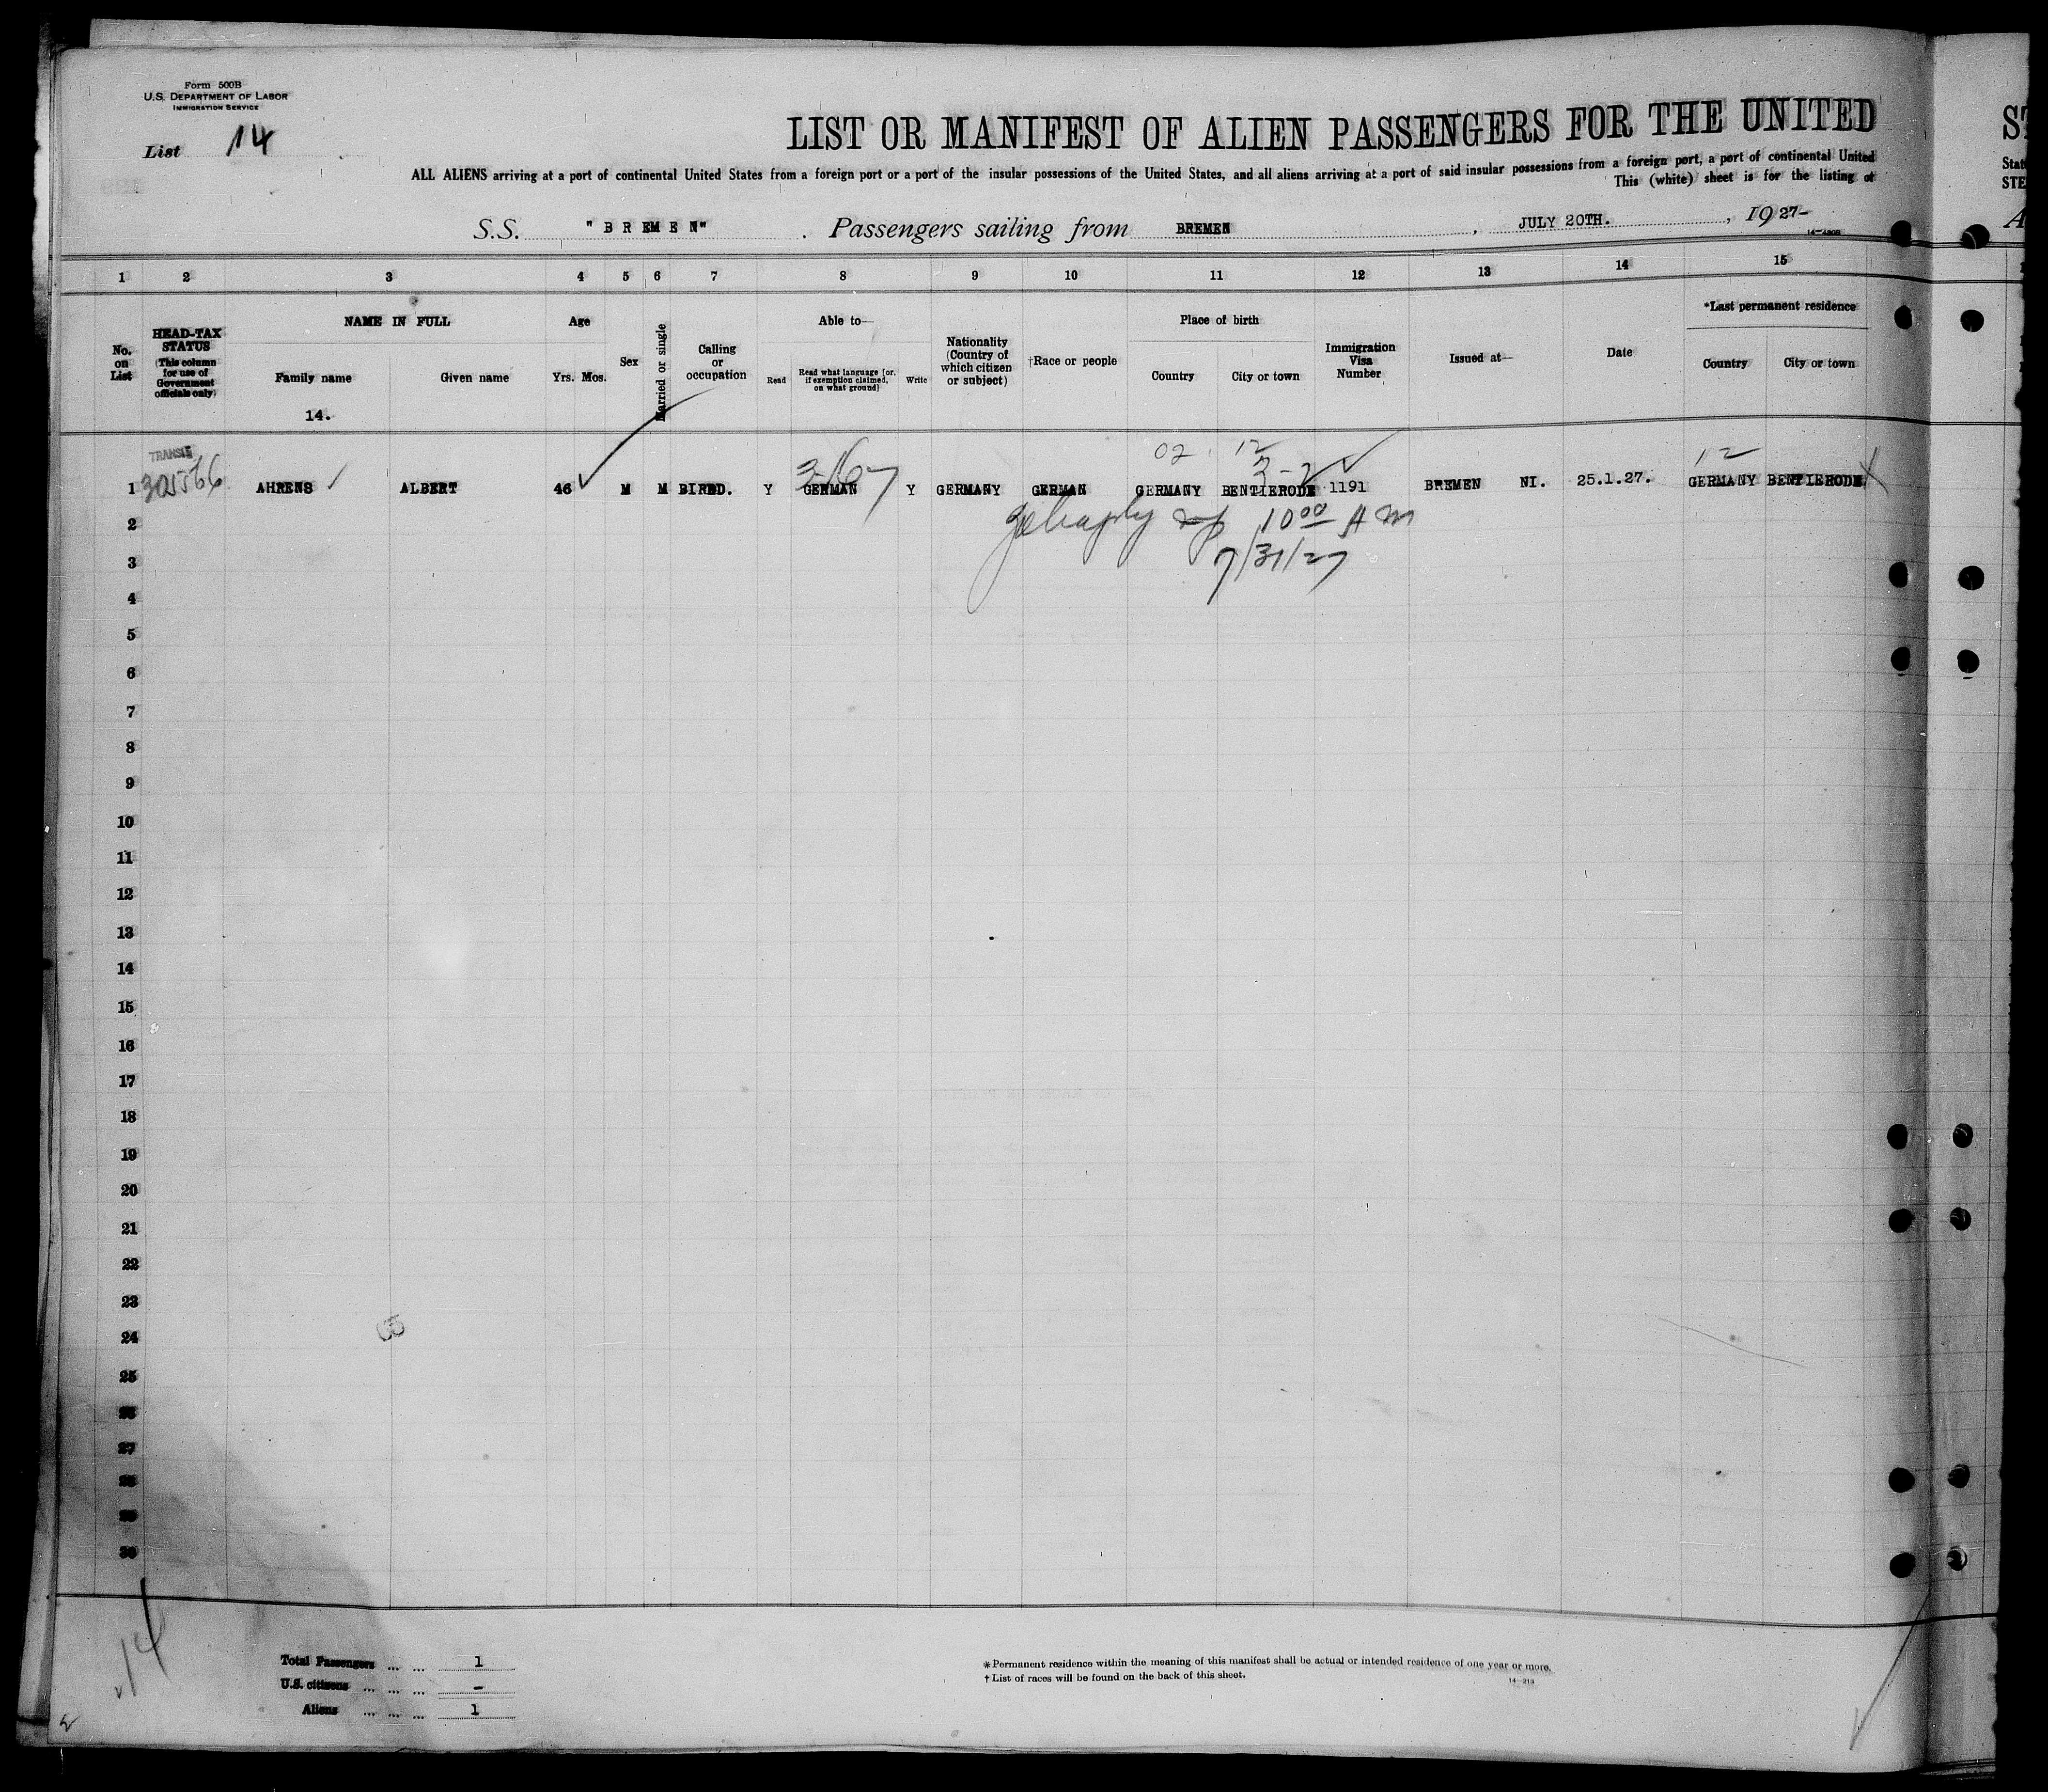 Form 500B
U.S. DEPARTMENT OF LABOR
IMMIGRATION SERVICE
List 14
LIST OR MANIFEST OF ALIEN PASSENGERS FOR THE UNITED
ALL ALIENS arriving at a port of continental United States from a foreign port or a port of the insular possessions of the United States, and all aliens arriving at a port of said insular possessions from a foreign port, a port of continental United
This (white) sheet is for the listing of
S.S. "BREMEN" . Passengers sailing from BREMEN , JULY 20TH. , 1927-
1 2 3 4 5 6 7 8 9 10 11 12 13 14 15
No. on List
HEAD-TAX STATUS
(This column for use of Government officials only)
NAME IN FULL
Family name Given name
14.
Age
Yrs. Mos.
Sex
Married or single
Calling or occupation
Able to—
Read
Read what language [or, if exemption claimed, on what ground]
Write
Nationality (Country of which citizen or subject)
†Race or people
Place of birth
Country City or town
Immigration Visa Number
Issued at—
Date
*Last permanent residence
Country City or town
TRANSIT
02 12 12
1 AHRENS ALBERT 46 M M Y GERMAN Y GERMANY GERMAN GERMANY BENTIERODE 1191 BREMEN NI. 25.1.27. GERMANY BENTIERODE
2 10 00 AM
3 7/31/27
4
5
6
7
8
9
10
11
12
13
14
15
16
17
18
19
20
21
22
23
24
25
26
27
28
29
30
14
Total Passengers ... ... 1
U.S. citizens ... ... ... -
Aliens ... ... ... 1
*Permanent residence within the meaning of this manifest shall be actual or intended residence of one year or more.
†List of races will be found on the back of this sheet.
14—213